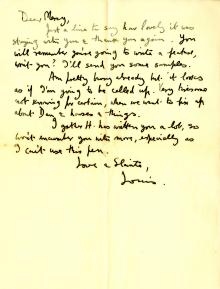 Dear Mercy,
Just a line to say how lovely it was
staying with you & thank you again. You
will remember you're going to write a
won't you? I'll send you some samples.
Am pretty busy already but it looks
as if I'm going to be called up. Very tiresome
not knowing for certain, then we want to fix up
about Dan & horses & things.
I gather H. has written you a lot, so
won't encumber you with more, especially as
I can't use this pen.
Love
Louis.